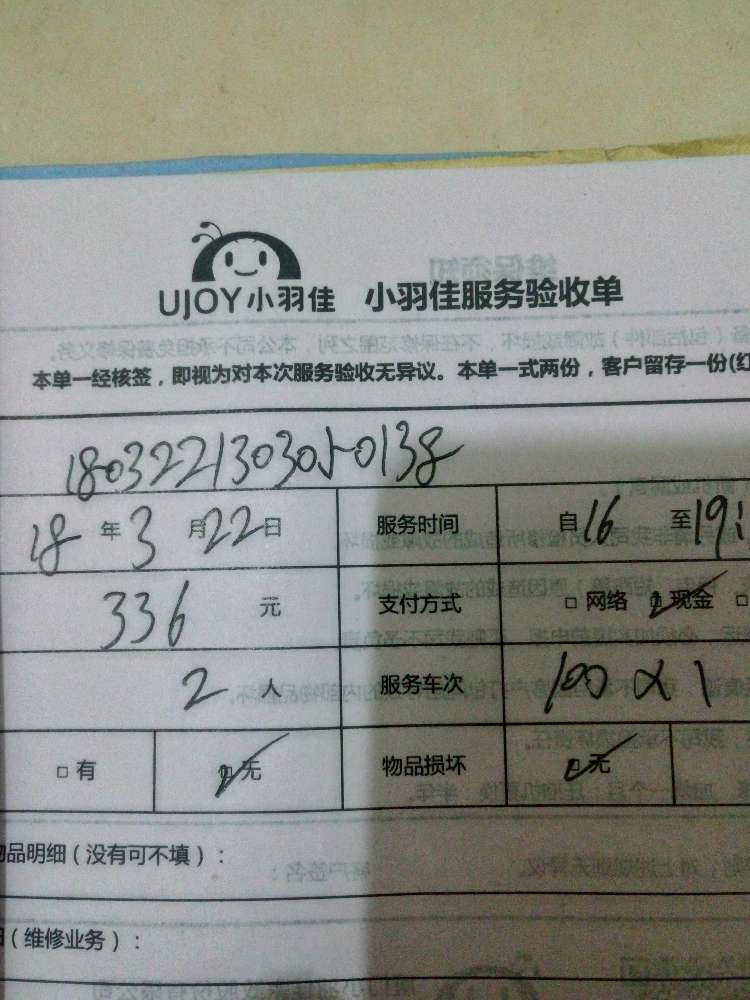 UJOY小羽佳 小羽佳服务验收单
本单一经核签，即视为对本次服务验收无异议。本单一式两份，客户留存一份(红
1803221303050138
18年3月22日 服务时间 自16至19:
336元 支付方式 □网络 ☑现金 □
2人 服务车次 100×1
□有 ☑无 物品损坏 ☑无
品明细（没有可不填）：
（维修业务）：